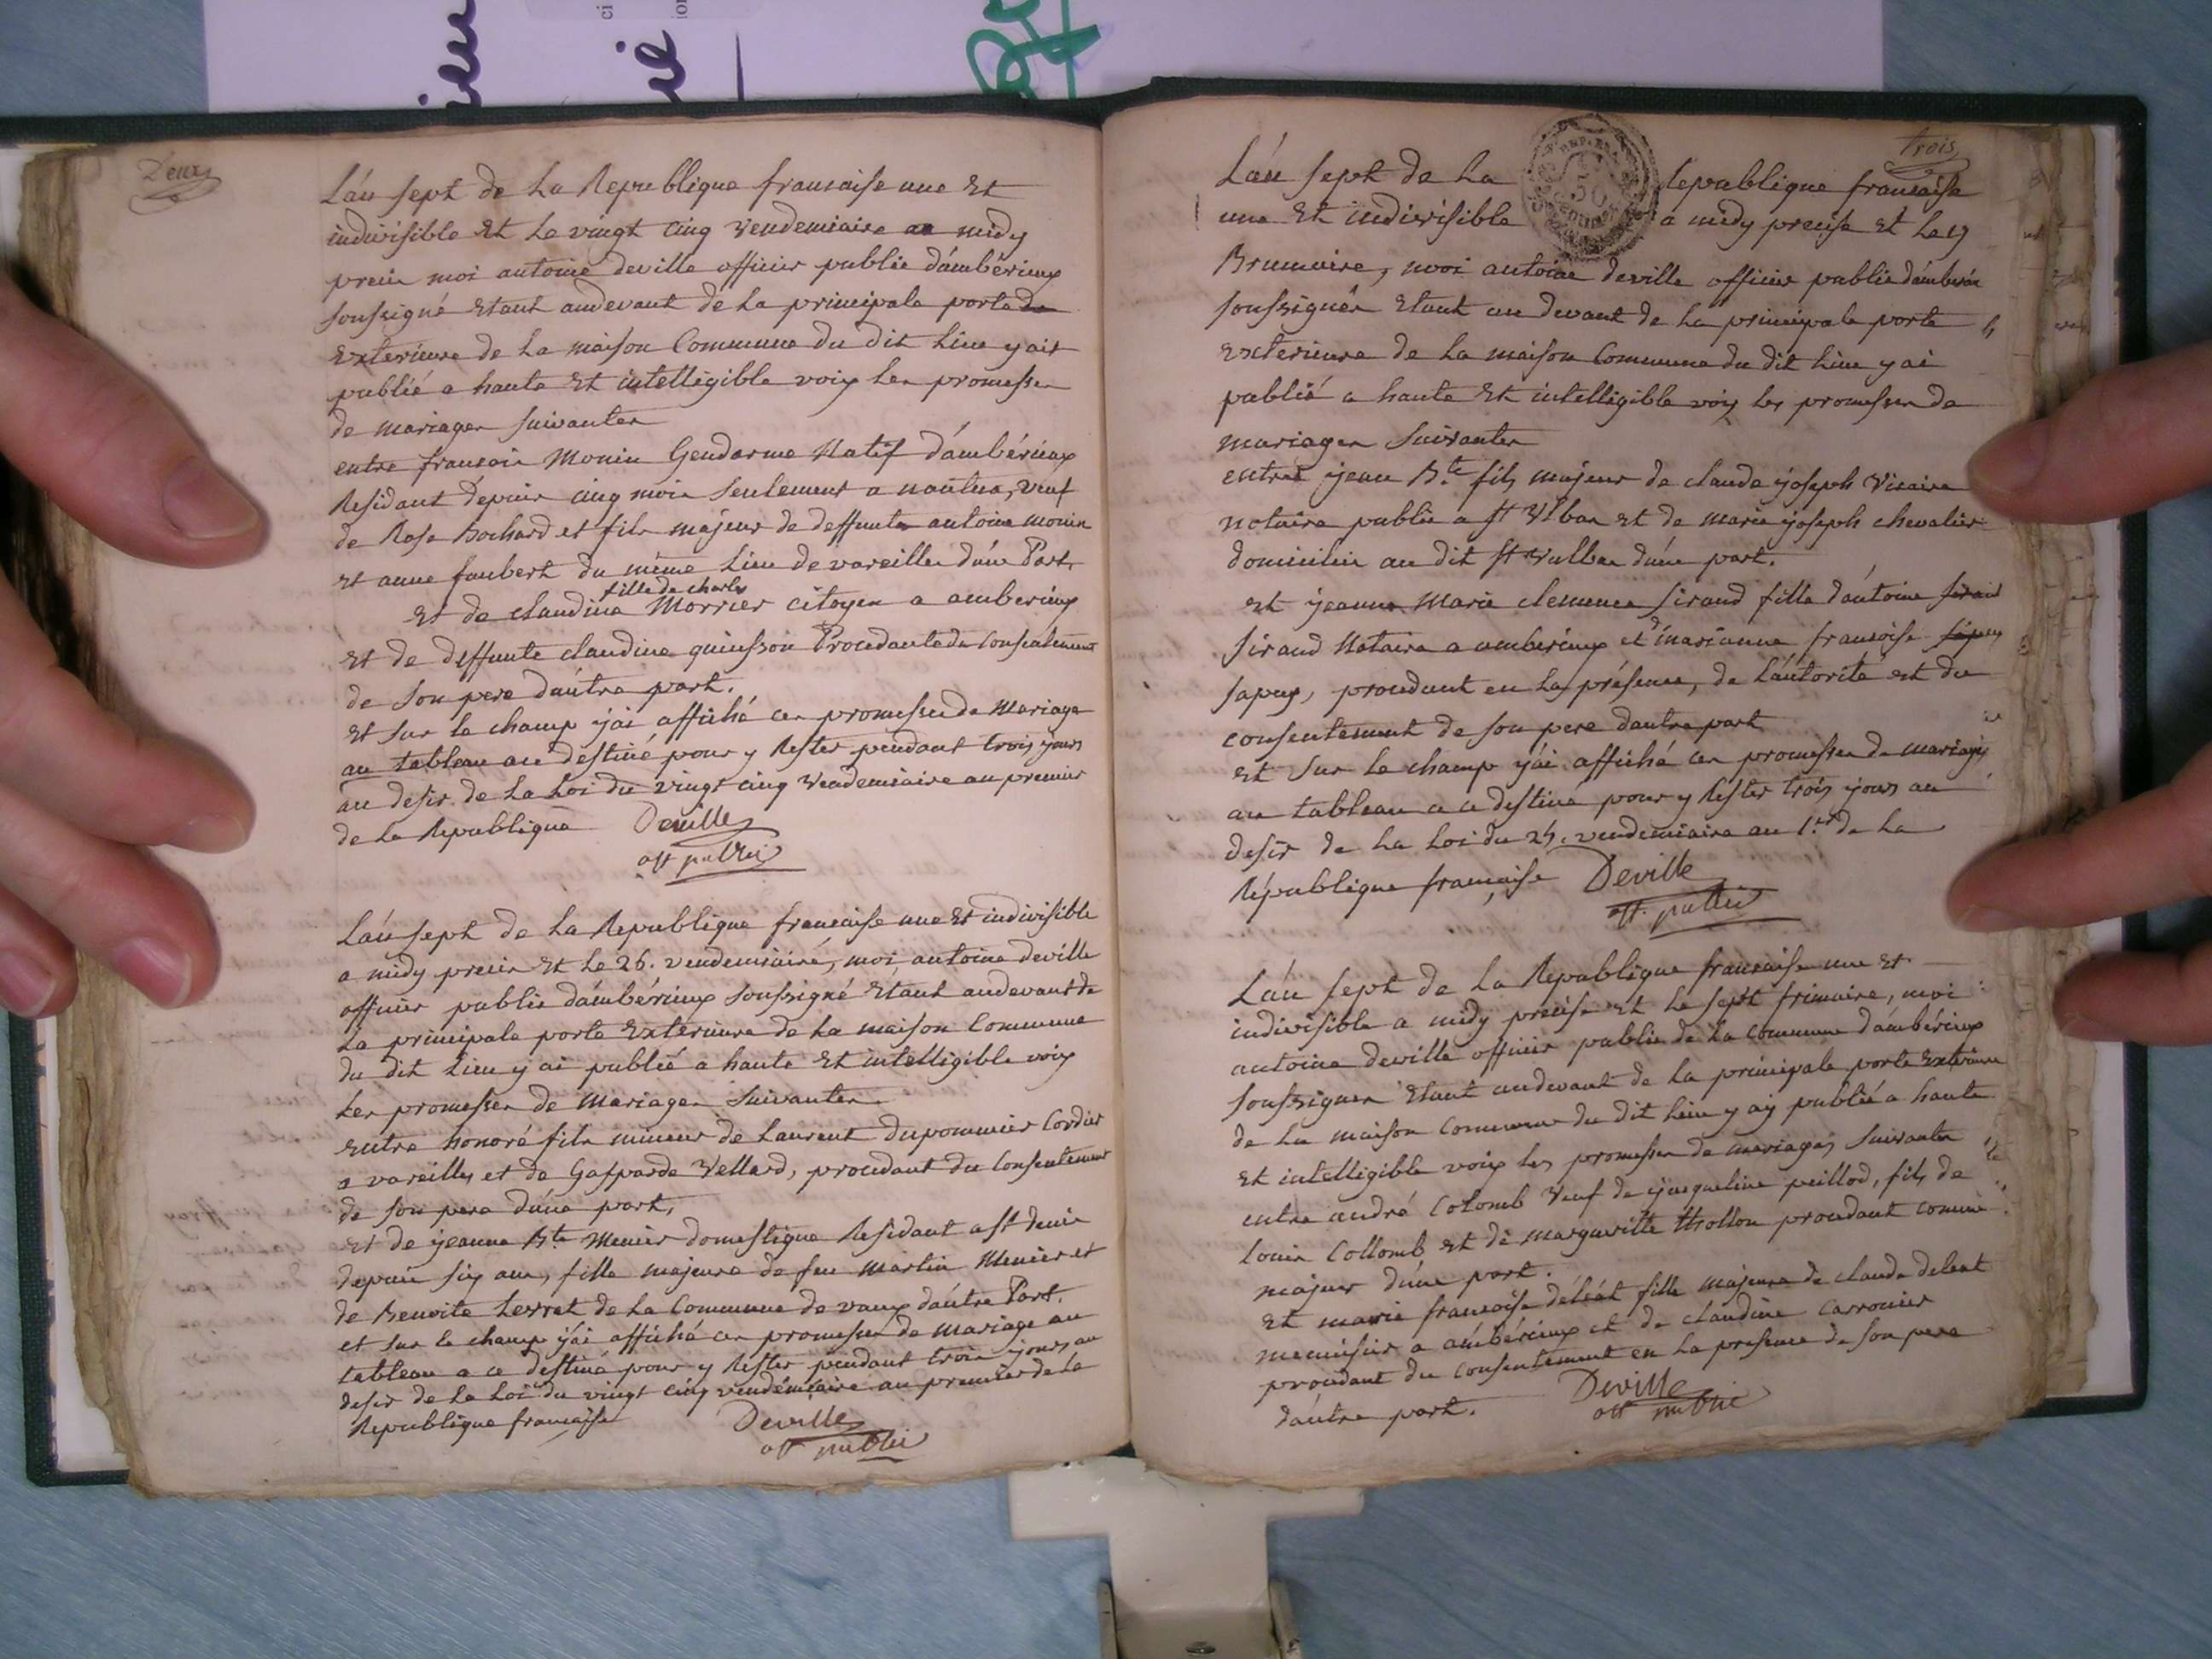 Deux
L'an sept de la Republique francaise une Et
indivisible Et le vingt cinq vendemiaire a midy
precis moi antoine deville officier public d'ambérieux
soussigné Etant audevant de la principale porte
Exterieure de la maison Commune du dit lieu y ait
publié a haute Et intelligible voix les promesses
de mariages suivantes
entre francois Monin Gendarme Natif d'ambérieux
Residant depuis cinq mois seulement a nantua, veuf
de Rose Bochard et fils majeur de deffunts antoine monin
et anne joubert du même lieu de vareilles d'une Part,
fille de charles
Et de claudine Morrier citoyen a amberieux
Et de deffunte claudine quinsson Procedante du consentement
de son pere d'autre part.
Et sur le champ j'ai affiché ces promesses de Mariage
au tableau au destiné pour y Rester pendant trois jours
au desir de la Loi du vingt cinq vendemiaire an premier
de la Republique Deville
off public
L'an sept de la Republique francaise une Et indivisible
a midy precis Et le 26. vendemiaire, moi, antoine deville
officier public d'ambérieux soussigné Etant audevant de
la principale porte Exterieure de la maison Commune
du dit lieu y ai publié a haute Et intelligible voix
les promesses de mariages suivantes.
Entre honoré fils mineur de Laurent dupommier Cordier
a vareilles et de Gasparde Vellard, procedant du Consentement
de son pere d'une part,
Et de jeanne Bte Menier domestique Residant a st denis
depuis six ans, fille majeure de feu Martin Menier et
de Benoite Lerret de la Commune de vaux d'autre Part.
et sur le champ j'ai affiché ces promesses de Mariage au
tableau a ce destiné pour y Rester pendant trois jours au
desir de la Loi du vingt cinq vendemiaire an premier de la
Republique française Deville
off public
trois
L'an sept de la Republique francaise
une Et indivisible a midy precise Et le 19
Brumaire, moi antoine deville officier public
soussignés Etant au devant de la principale porte
Exterieure de la maison Commune du dit lieu y ai
publié a haute Et intelligible voix les promesses de
mariages Suivantes
entre jean Bte fils majeur de claude joseph Vicaire
notaire public a st Vlbas et de marie joseph chevalier
domiciliés au dit st Vulbas d'une part.
Et jeanne Marie clemence sirand fille d'antoine
sirand Notaire a amberieux et marianne francoise
sapey, procedant en la présence, de l'autorité et du
consentement de son pere dautre part
Et sur le champ j'ai affiché ces promesses de mariages
au tableau a ce destiné pour y Rester trois jours au
desir de la Loi du 25. vendemiaire an 1.er de la
République française Deville
off. public
L'an sept de la Republique francaise une Et
indivisible a midy precise Et le sept frimaire, moi
antoine deville officier public de la commune d'ambérieux
soussignés Etant audevant de la principale porte Exterieure
de la maison Commune du dit lieu y ay publié a haute
Et intelligible voix les promesses de mariages suivantes
entre andré Colomb veuf de jacqueline peillod, fils de
louis Collomb et de marguerite thollon procedant comme
majeur d'une part.
Et marie francoise déléat fille majeure de claude deleat
menuisier a ambérieux et de claudine Carronier
procedant du consentement en la presence de son pere
d'autre part. Deville
off public